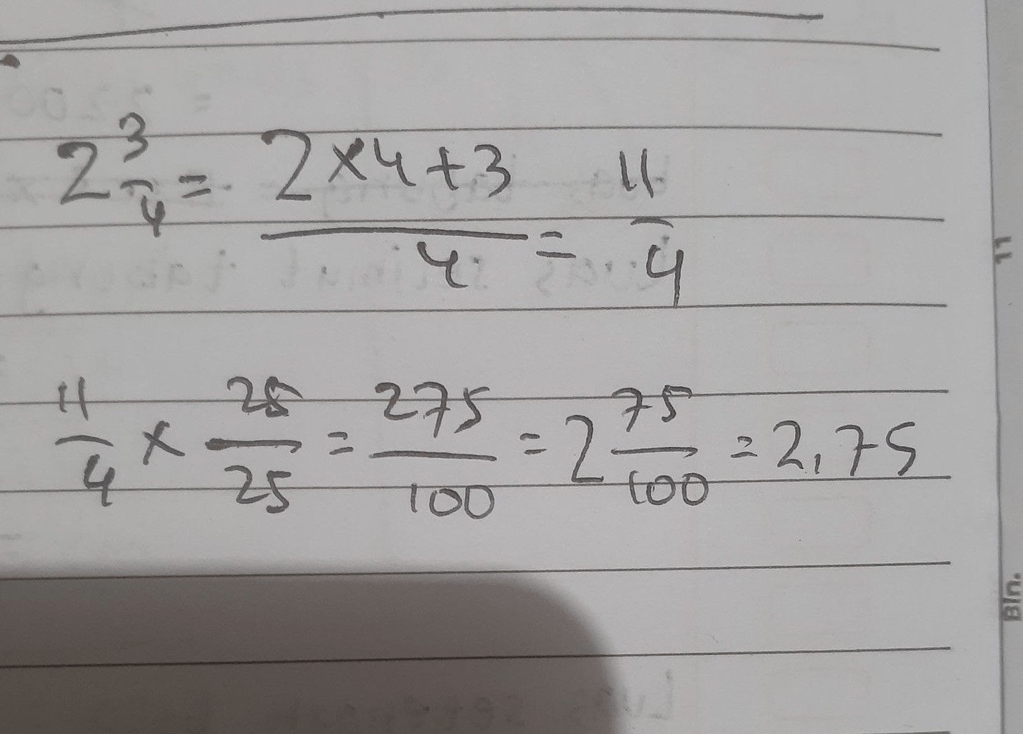 2 3/4 = (2 × 4 + 3)/4 = 11/4
11/4 × 25/25 = 275/100 = 2 75/100 = 2,75
11
Bln.